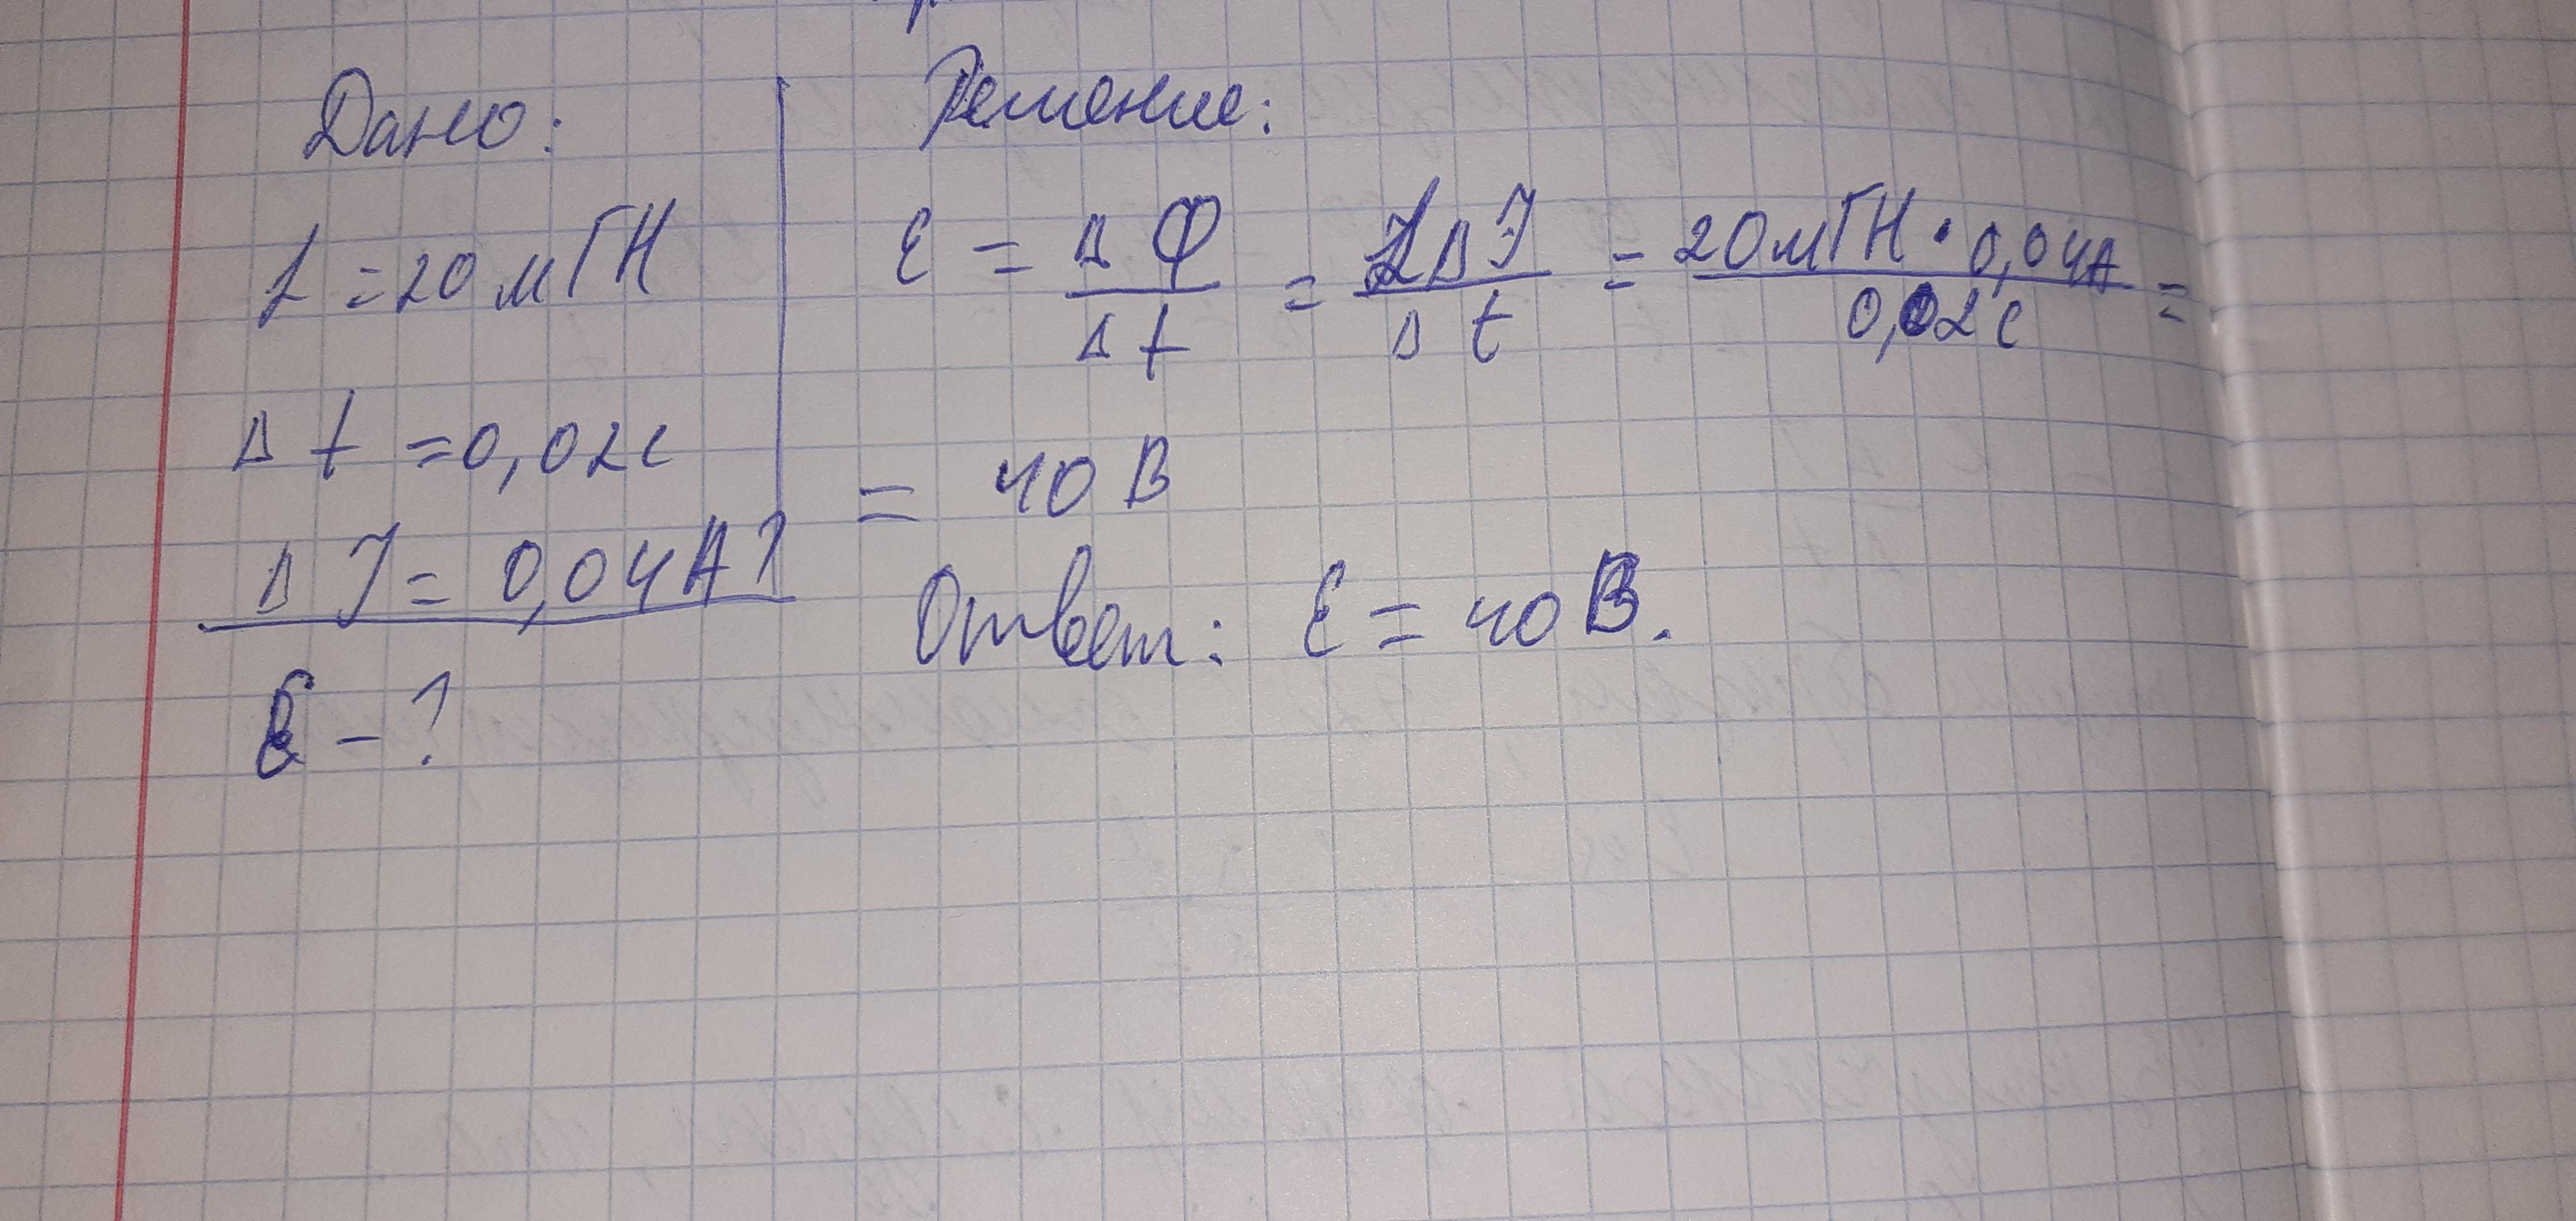 Дано:
L = 20 мГН
Δt = 0,02с
ΔI = 0,04А?
ℰ - ?
Решение:
ℰ = ΔФ/Δt = LΔI/Δt = 20мГН · 0,04А/0,02с =
= 40 В
Ответ: ℰ = 40 В.